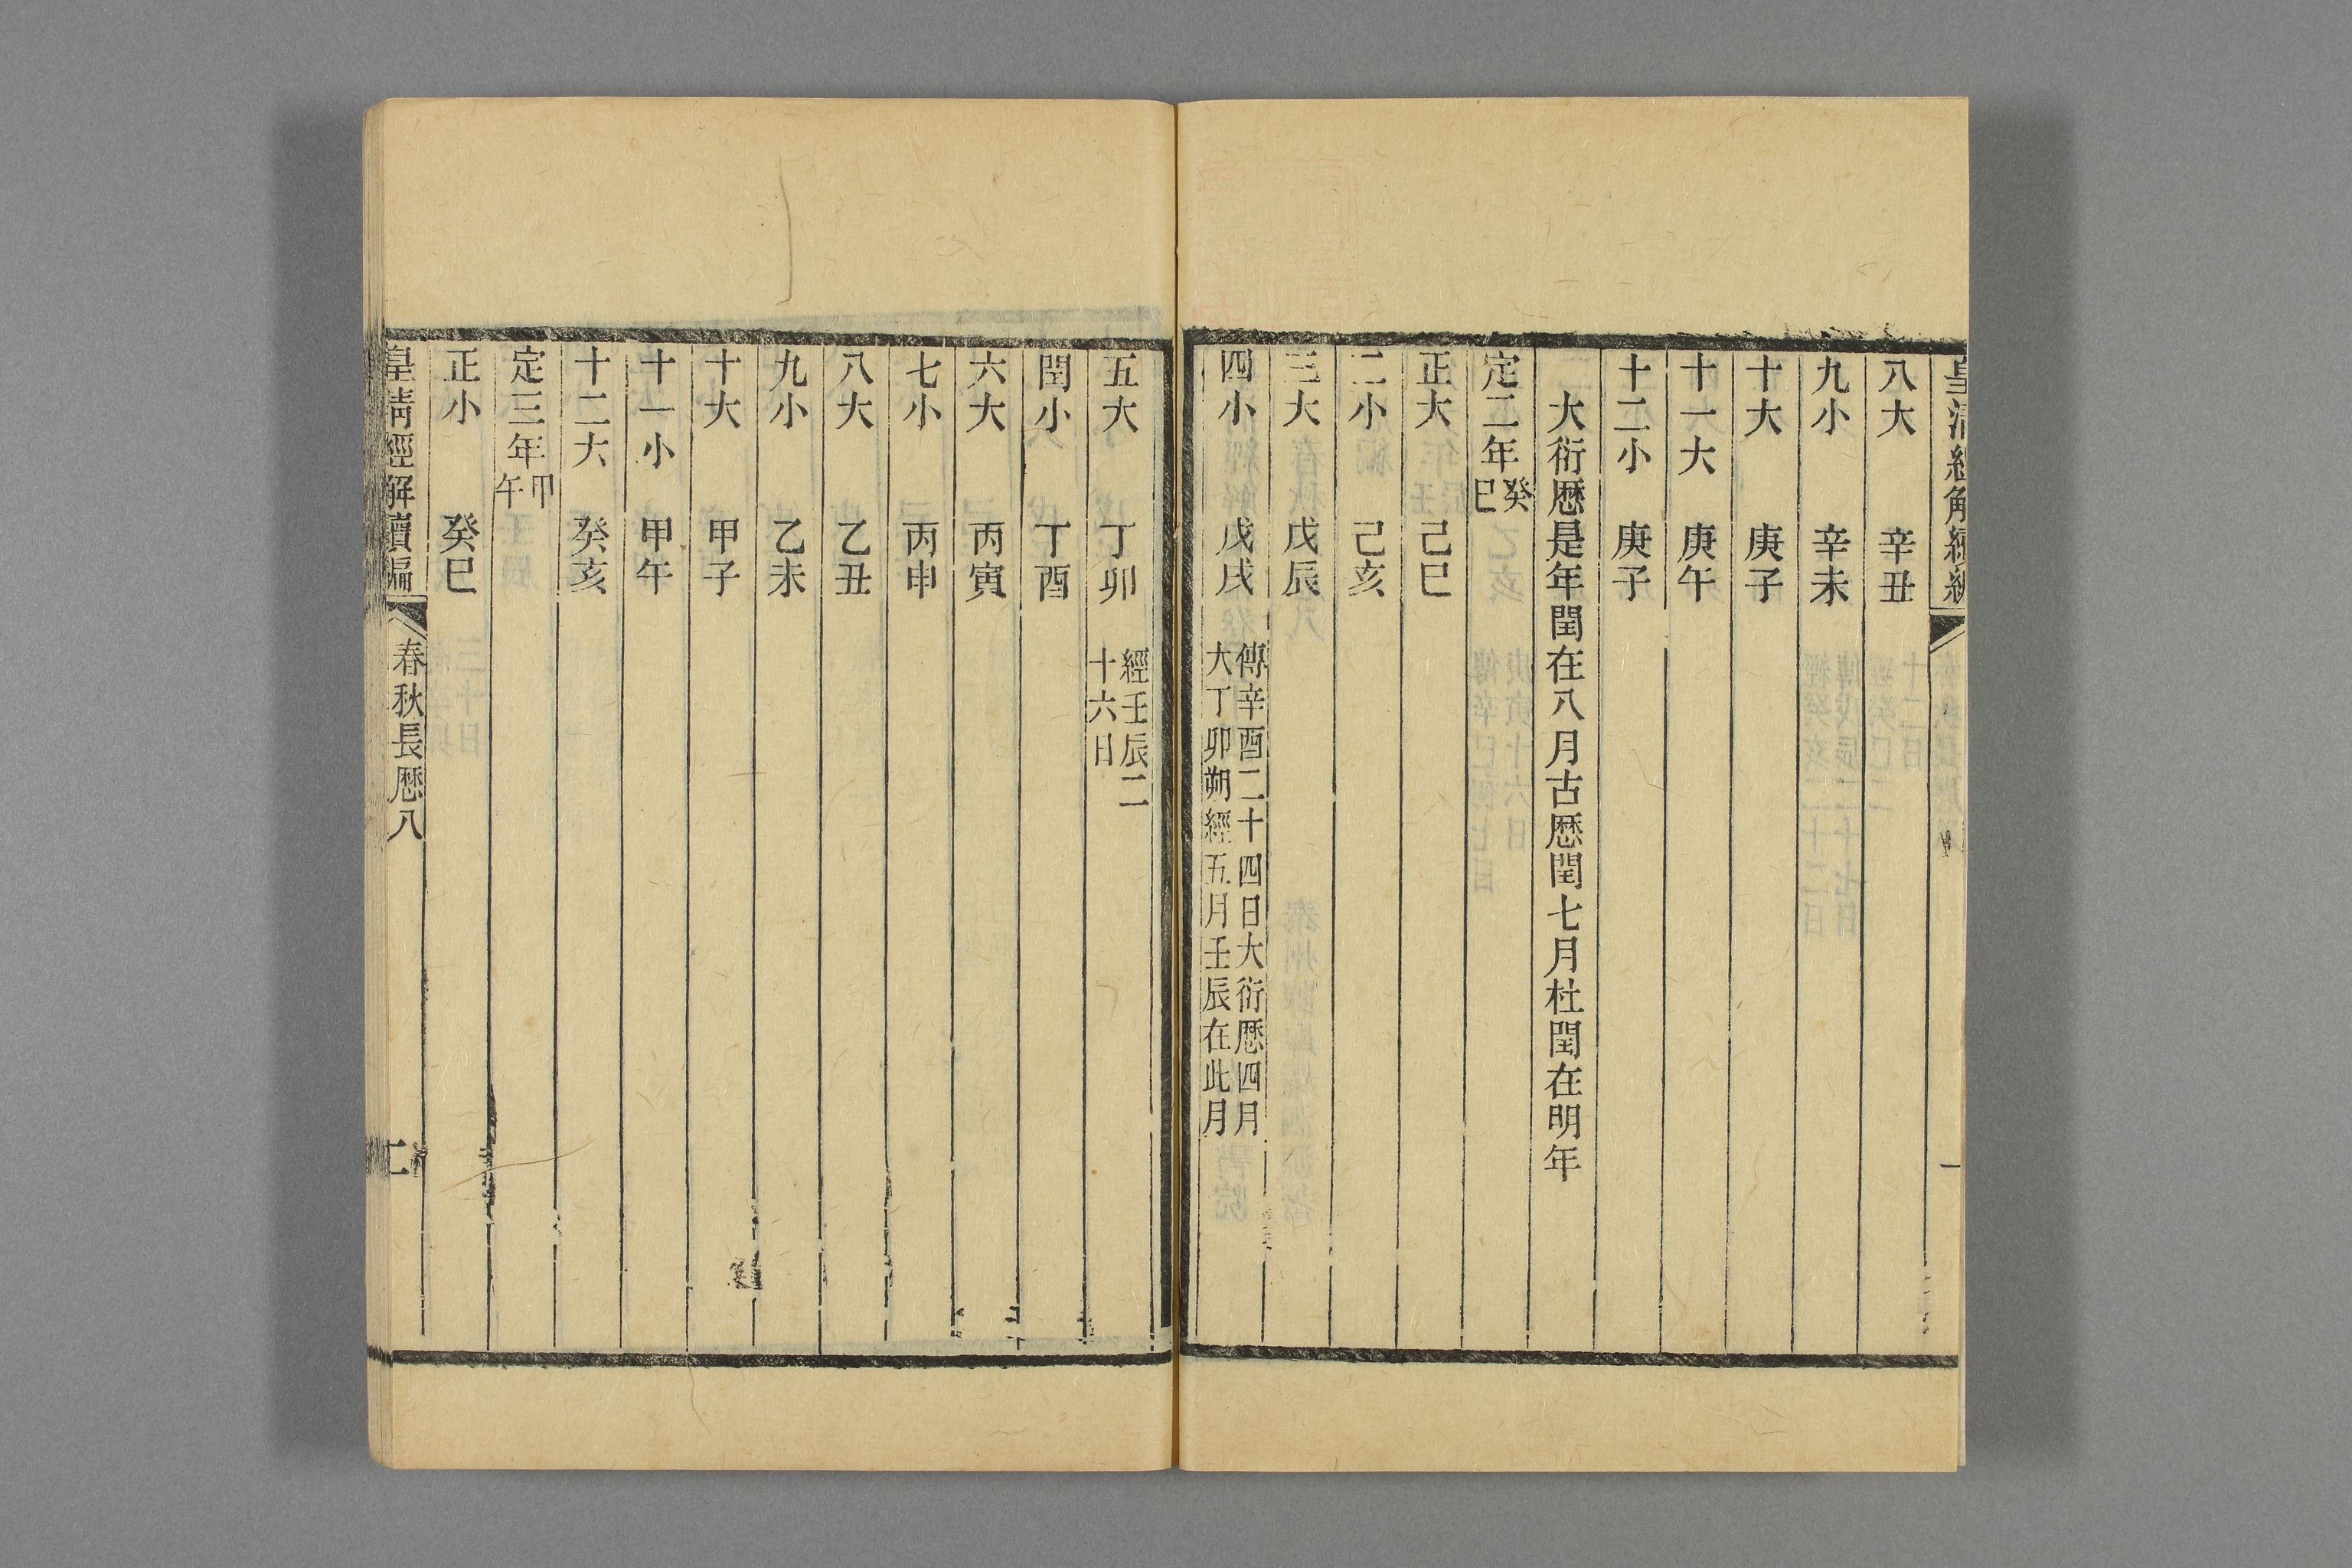 皇清經解續編
一
八大　辛丑
九小　辛未
十大　庚子
十一大　庚午
十二小　庚子
大衍厯是年閏在八月古厯閏七月杜閏在明年
定二年癸巳
正大　己巳
二小　己亥
三大　戊辰
四小　戊戌　傳辛酉二十四日大衍厯四月
大丁卯朔經五月壬辰在此月
五大　丁卯　經壬辰二
十六日
閏小　丁酉
六大　丙寅
七小　丙申
八大　乙丑
九小　乙未
十大　甲子
十一小　甲午
十二大　癸亥
定三年甲午
正小　癸巳
皇清經解續編　春秋長厯八　二